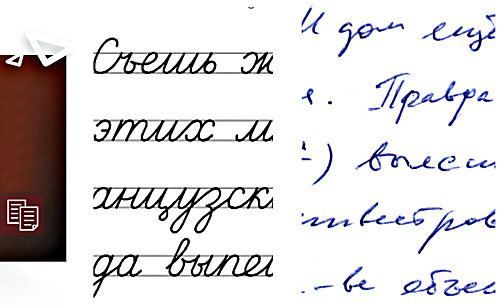 Съешь ж
этих м
анцузск
да выпей
И дом ещё
я. Правра
-) вылест
нвестров
-ве объе